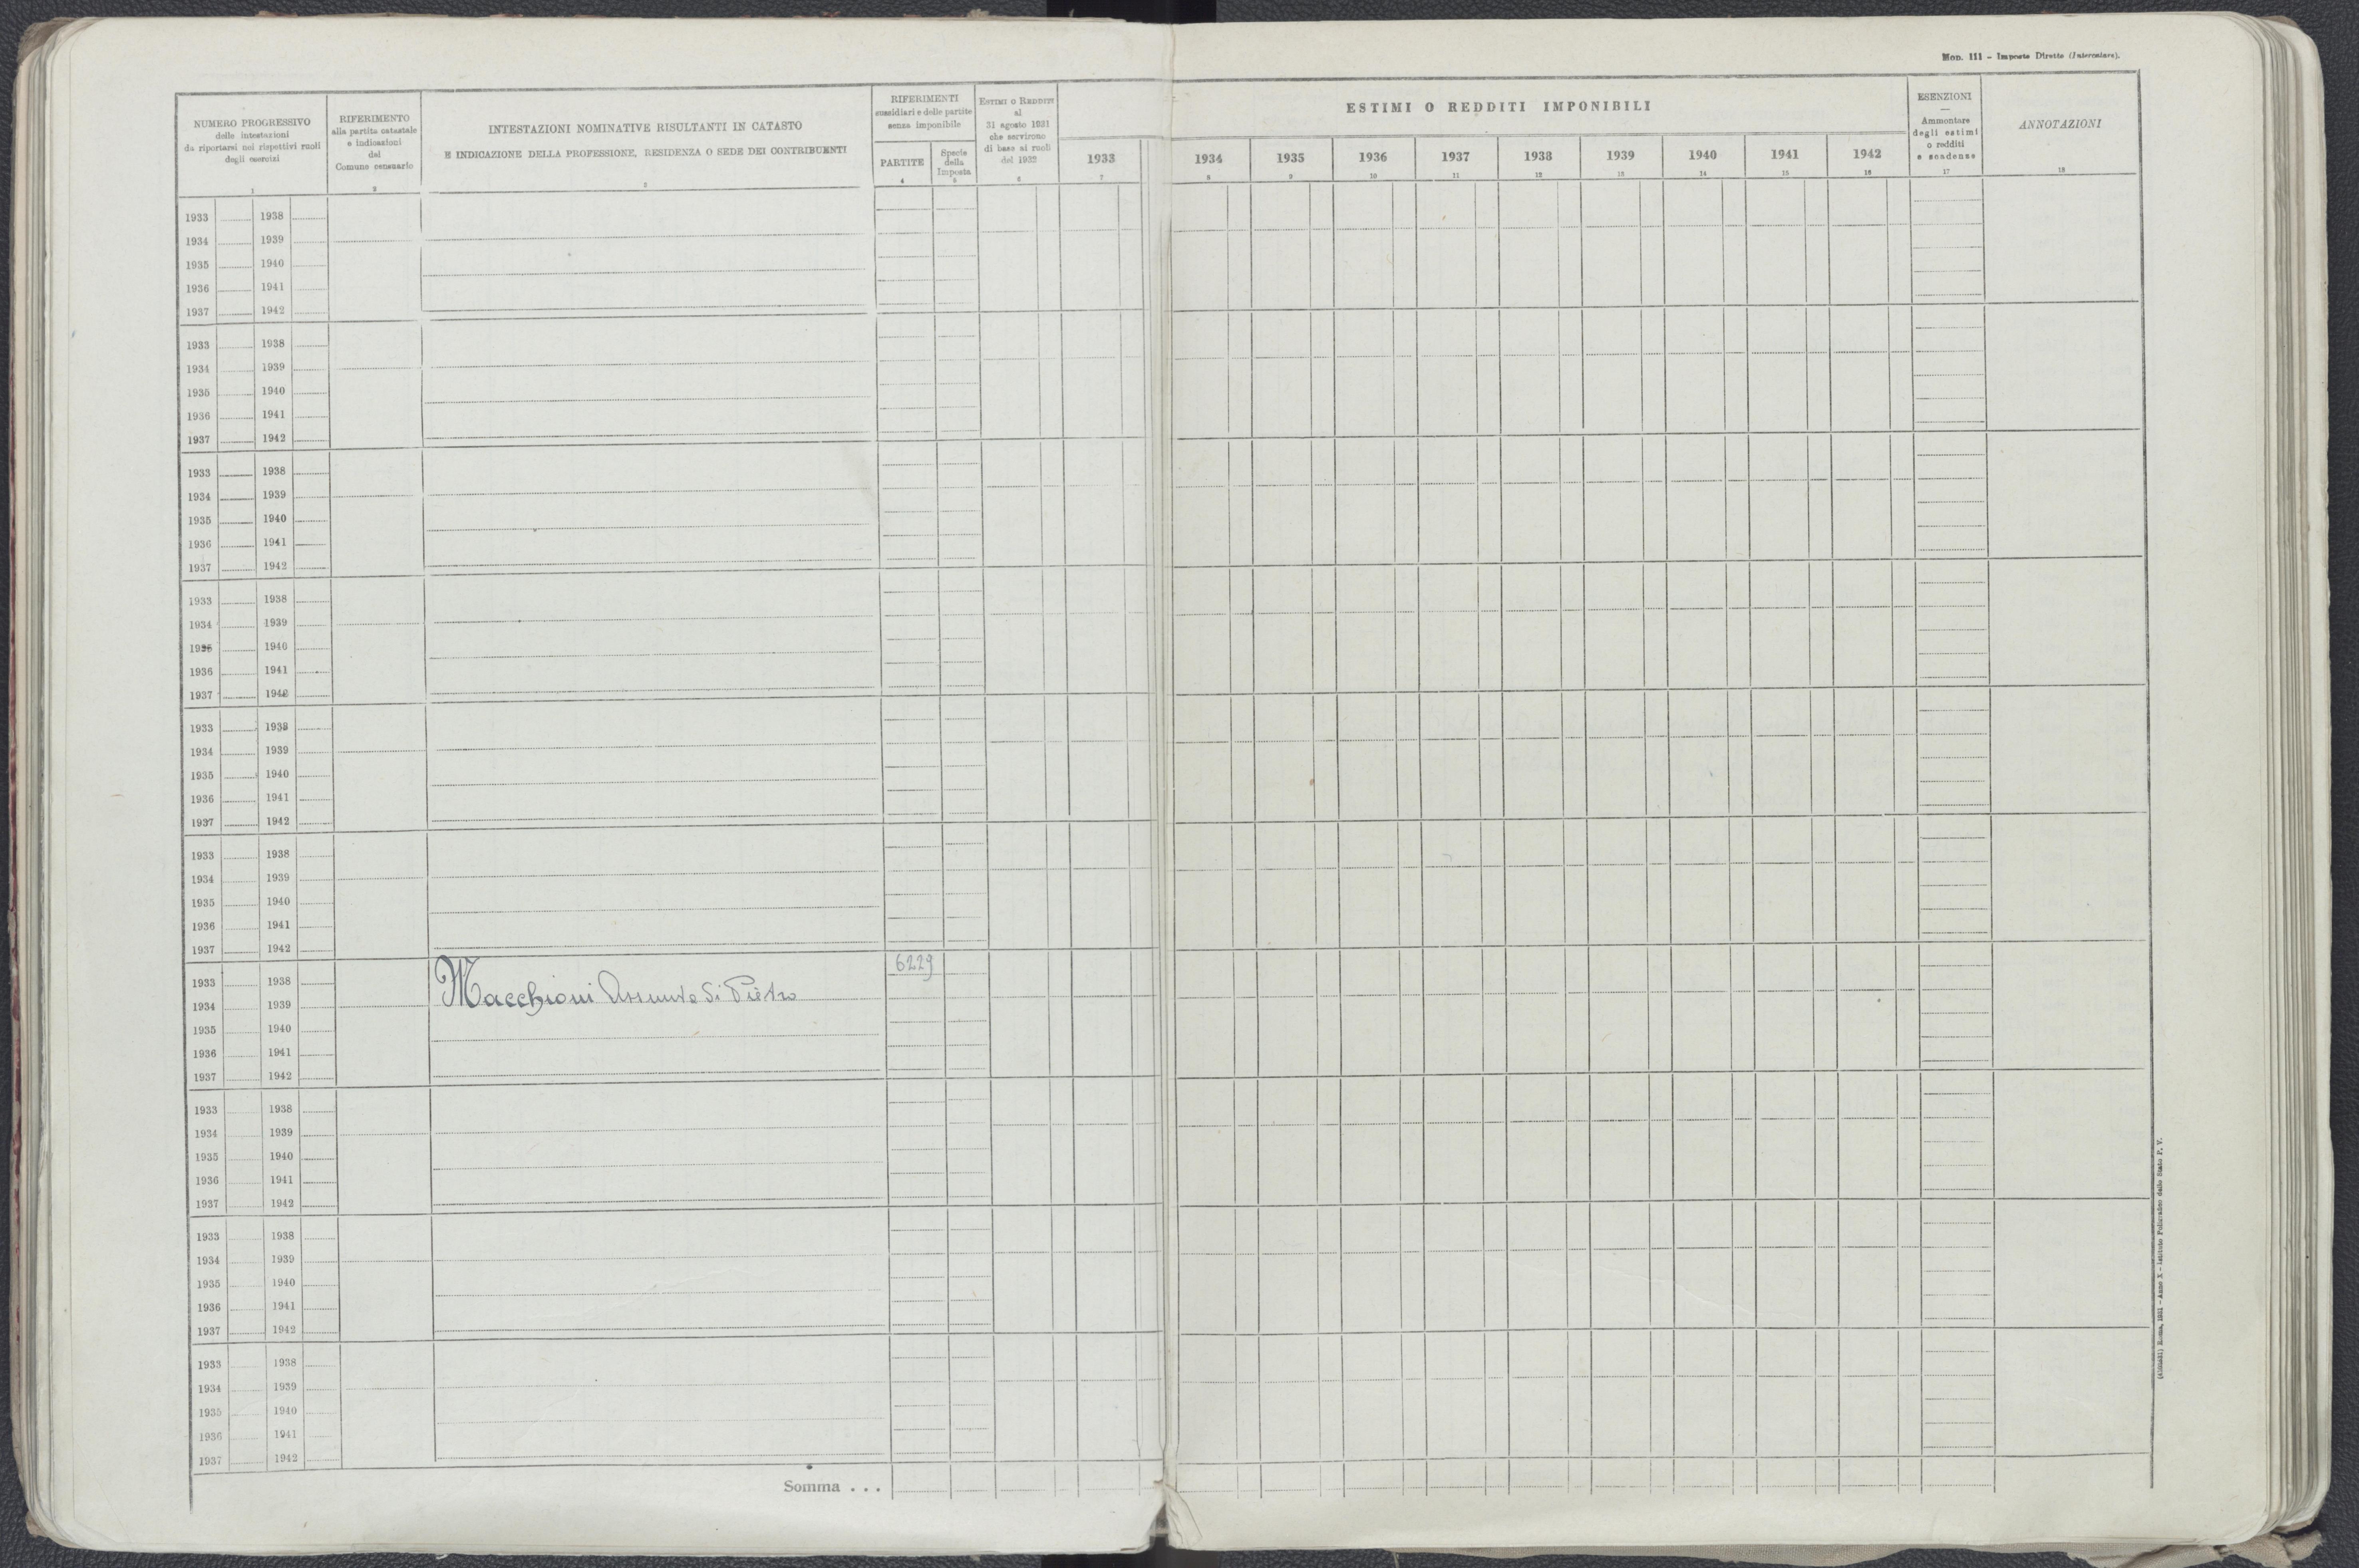 Mod. 111 - Imposte Dirette (Intercalare).
NUMERO PROGRESSIVO
delle intestazioni
da riportarsi nei rispettivi ruoli
degli esercizi
1
RIFERIMENTO
alla partita catastale
e indicazioni
del
Comune censuario
2
INTESTAZIONI NOMINATIVE RISULTANTI IN CATASTO
E INDICAZIONE DELLA PROFESSIONE, RESIDENZA O SEDE DEI CONTRIBUENTI
3
RIFERIMENTI
sussidiari e delle partite
senza imponibile
PARTITE
4
Specie
della
Imposta
5
ESTIMI O REDDITI
al
31 agosto 1931
che servirono
di base ai ruoli
del 1932
6
ESTIMI O REDDITI IMPONIBILI
1933 1934 1935 1936 1937 1938 1939 1940 1941 1942
7 8 9 10 11 12 13 14 15 16
ESENZIONI
—
Ammontare
degli estimi
o redditi
e scadenze
17
ANNOTAZIONI
18
1933 1938
1934 1939
1935 1940
1936 1941
1937 1942
1933 1938
1934 1939
1935 1940
1936 1941
1937 1942
1933 1938
1934 1939
1935 1940
1936 1941
1937 1942
1933 1938
1934 1939
1935 1940
1936 1941
1937 1942
1933 1938
1934 1939
1935 1940
1936 1941
1937 1942
1933 1938
1934 1939
1935 1940
1936 1941
1937 1942
6229
1933 1938
1934 1939 Macchioni Assunta di Pietro
1935 1940
1936 1941
1937 1942
1933 1938
1934 1939
1935 1940
1936 1941
1937 1942
1933 1938
1934 1939
1935 1940
1936 1941
1937 1942
1933 1938
1934 1939
1935 1940
1936 1941
1937 1942
Somma . . .
Roma, 1931 - Anno X - Istituto Poligrafico dello Stato P. V.